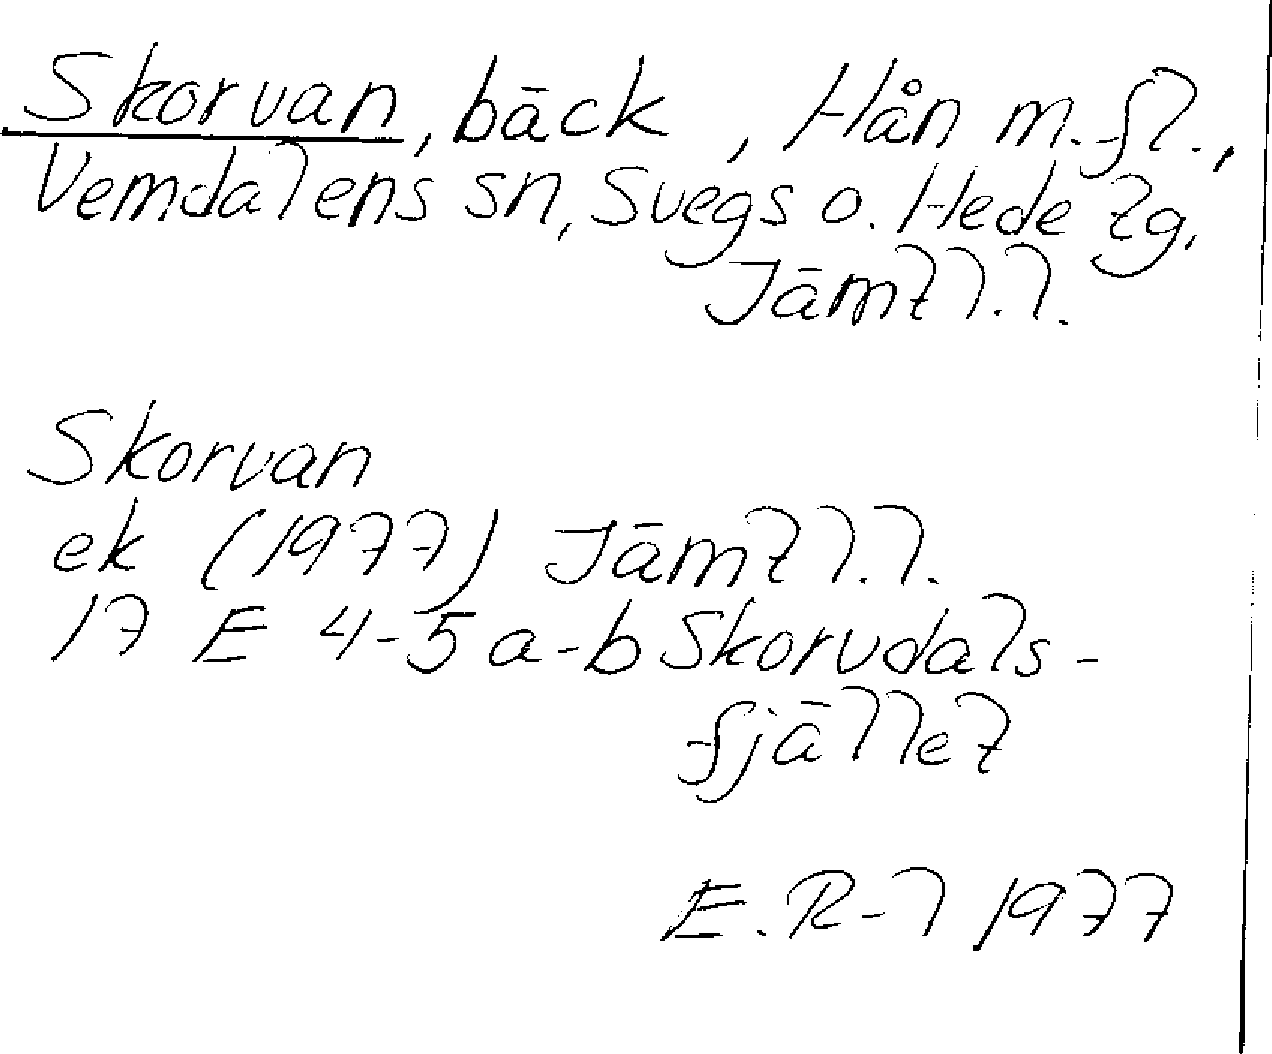 Skorvan, bäck, Hån m.fl.,
Vemdalens sn, Svegs o. Hede tg,
Jämtl.l.
Skorvan
ek (1977) Jämtl.l.
17 E 4-5 a-b Skorvdals-
fjället
E. R-l 1977